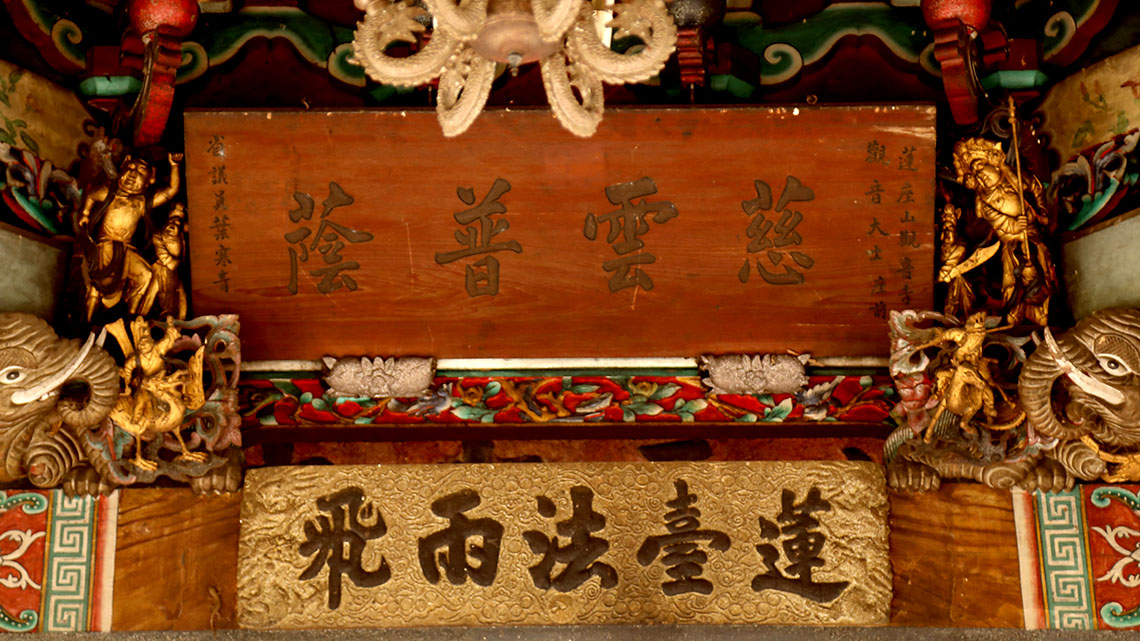 蓮座山觀音寺
觀音大士座前
慈雲普蔭
省議員葉寒青
蓮臺法雨飛